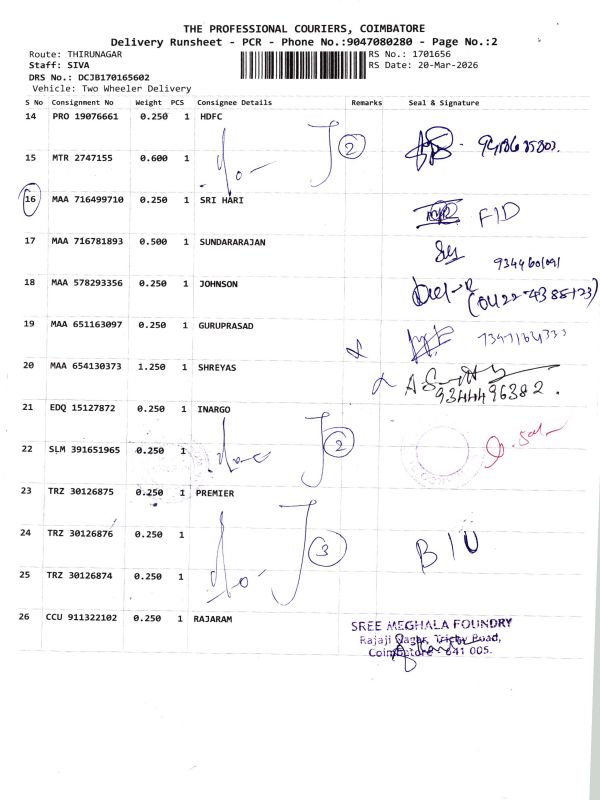 THE PROFESSIONAL COURIERS, COIMBATORE
Delivery Runsheet - PCR - Phone No.:9047080280 - Page No.:2
Route: THIRUNAGAR RS No.: 1701656
Staff: SIVA RS Date: 20-Mar-2026
DRS No.: DCJB170165602
Vehicle: Two Wheeler Delivery
S No Consignment No Weight PCS Consignee Details Remarks Seal & Signature
14 PRO 19076661 0.250 1 HDFC
2
15 MTR 2747155 0.600 1
16 MAA 716499710 0.250 1 SRI HARI
FID
17 MAA 716781893 0.500 1 SUNDARARAJAN
18 MAA 578293356 0.250 1 JOHNSON
19 MAA 651163097 0.250 1 GURUPRASAD
20 MAA 654130373 1.250 1 SHREYAS
9344496382.
21 EDQ 15127872 0.250 1 INARGO
2
22 SLM 391651965 0.250 1
23 TRZ 30126875 0.250 1 PREMIER
24 TRZ 30126876 0.250 1
3
25 TRZ 30126874 0.250 1
26 CCU 911322102 0.250 1 RAJARAM
SREE MEGHALA FOUNDRY
Rajaji Nagar, Trichy Road,
Coimbatore - 641 005.